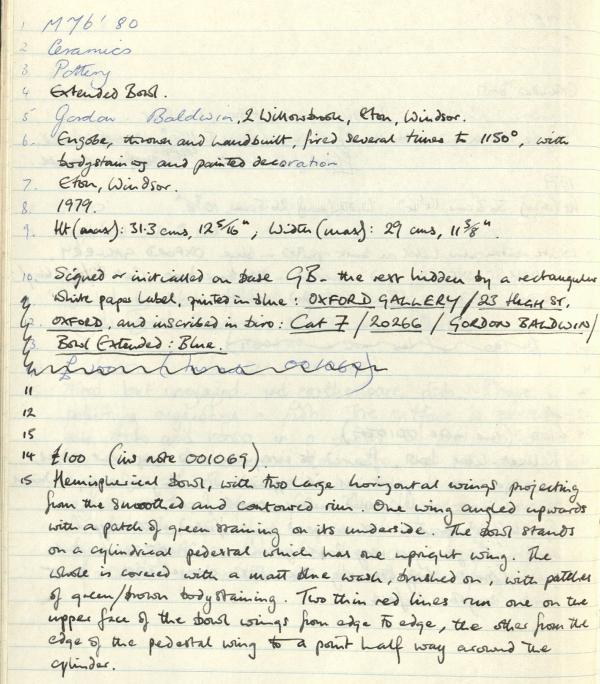 1 M76'80
2 Ceramics
3 Pottery
4 Extended Bowl.
5 Gordon Baldwin, 2 Willowbrook, Eton, Windsor.
6. Engobe, thrown and handbuilt, fired several times to 1150°, with
bodystaining and painted decoration
7. Eton, Windsor.
8. 1979.
9. Ht (max): 31.3 cms, 12 5/16"; Width (max): 29 cms, 11 3/8".
10. Signed or initialled on base GB - the rest hidden by a rectangular
white paper label, printed in blue: OXFORD GALLERY / 23 HIGH ST.
OXFORD, and inscribed in biro: Cat 7 / 20266 / GORDON BALDWIN /
Bowl Extended: Blue.
£100 001069)
11
12
13
14 £100 (inv note 001069).
15 Hemispherical bowl, with two large horizontal wings projecting
from the smoothed and contoured rim. One wing angled upwards
with a patch of green staining on its underside. The bowl stands
on a cylindrical pedestal which has one upright wing. The
whole is covered with a matt blue wash, brushed on, with patches
of green/brown bodystaining. Two thin red lines run one on the
upper face of the bowl wings from edge to edge, the other from the
edge of the pedestal wing to a point half way around the
cylinder.